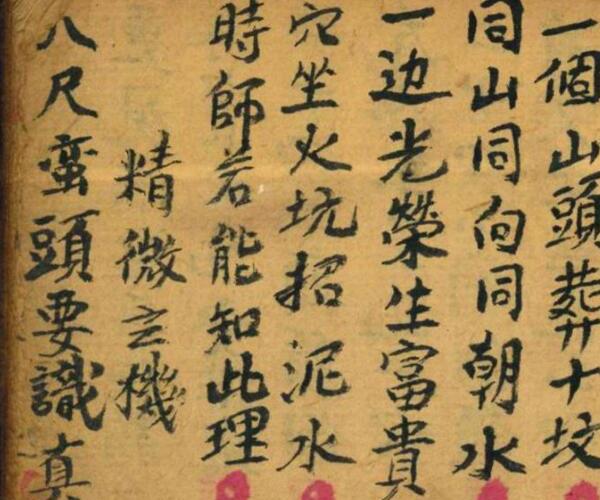 一個山頭葬十坟
同山同向同朝水
一边光榮生富貴
穴坐火坑招泥水
時師若能知此理
精微玄機
八尺蛮頭要識真